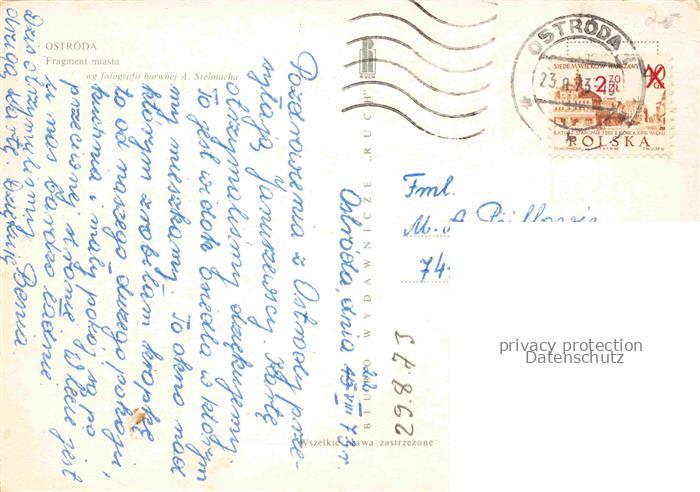 OSTRÓDA
Fragment miasta
wg fotografii barwnej A. Stelmacha
Pozdrowienia z Ostródy prze-
syłają Januszewscy. Kartę
otrzymaliśmy dziękujemy
To jest widok osiedla w którym
my mieszkamy. To okno nad
którym zrobiłam kropkę
to od naszego dużego pokoju,
kuchnia i mały pokój są po
przeciwnej stronie. W lecie jest
u nas bardzo ładnie
Dziś otrzymaliśmy
drugą kartę dziękuję Benia.
Ostróda, dnia 22 VIII 73 r.
BIURO WYDAWNICZE „RUCH”
RUCH
Wszelkie prawa zastrzeżone
29.8.73
OSTRÓDA
23.8.73
SIEDEM WIEKÓW WARSZAWY
2 70 ZŁ
40 GR
POLSKA
Fml.
M.
74
privacy protection
Datenschutz